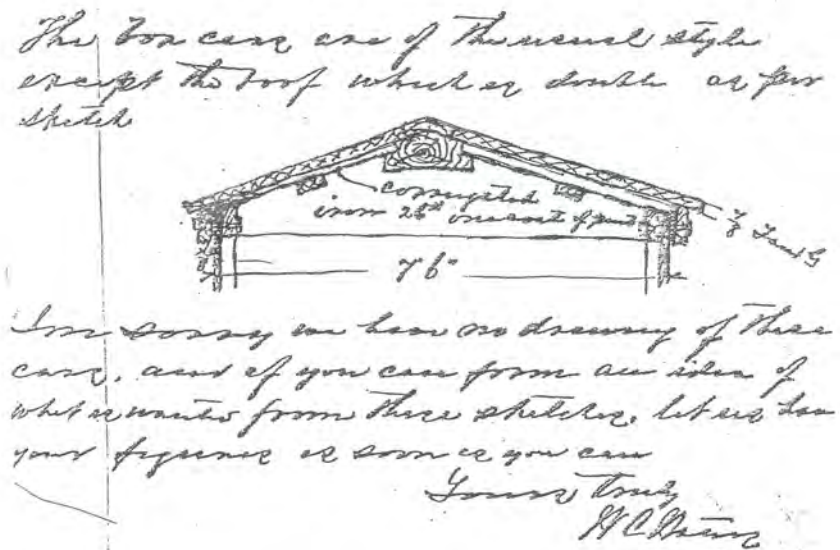 The box cars are of the usual style
except the roof which is double as per
sketch
corrugated
iron 26" one coat of paint
7/8 T and G
7' 6"
I'm sorry we have no drawing of these
cars, and if you can form an idea of
what is wanted from these sketches, let us have
your figures as soon as you can
Yours truly
H C